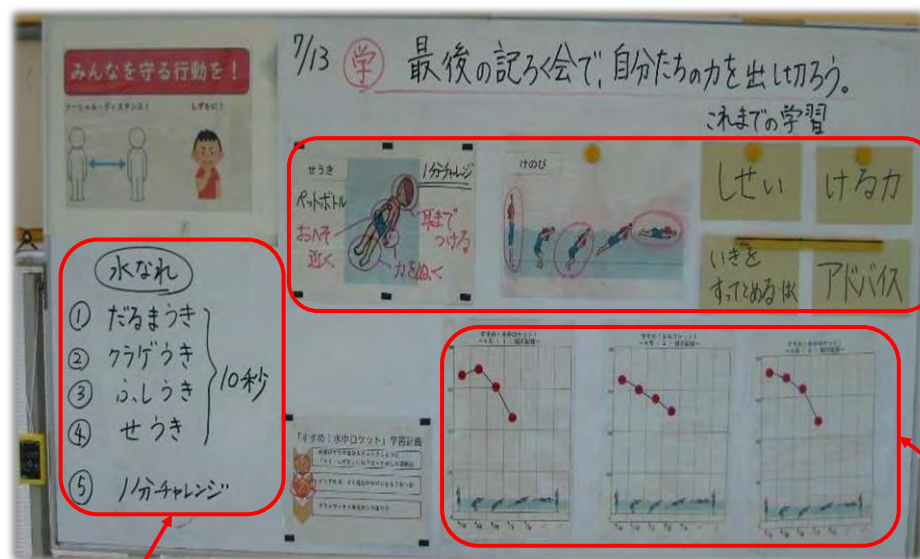 みんなを守る行動を！
ソーシャル・ディスタンス！
しずかに！
7/13 学 最後の記ろく会で、自分たちの力を出し切ろう。
これまでの学習
せうき
1分チャレンジ
ペットボトル
おへそ
近く
耳まで
つける
力をぬく
けのび
しせい
ける力
いきを
すってとめる
アドバイス
水なれ
① だるまうき
② クラゲうき
③ ふしうき
④ せうき
10秒
⑤ 1分チャレンジ
「すすめ！水中ロケット」学習計画
すすめ！水中ロケット！
すすめ！水中ロケット！
すすめ！水中ロケット！